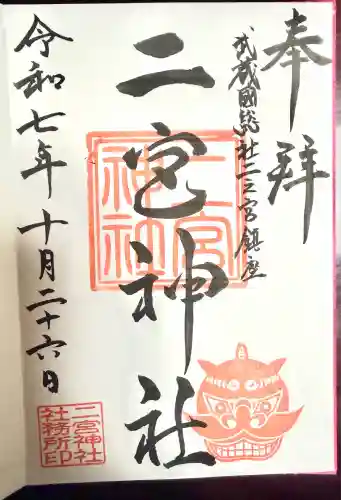 奉拝
武蔵國総社二之宮鎮座
二宮神社
令和七年十月二十六日
二宮神社
二宮神社
社務所印